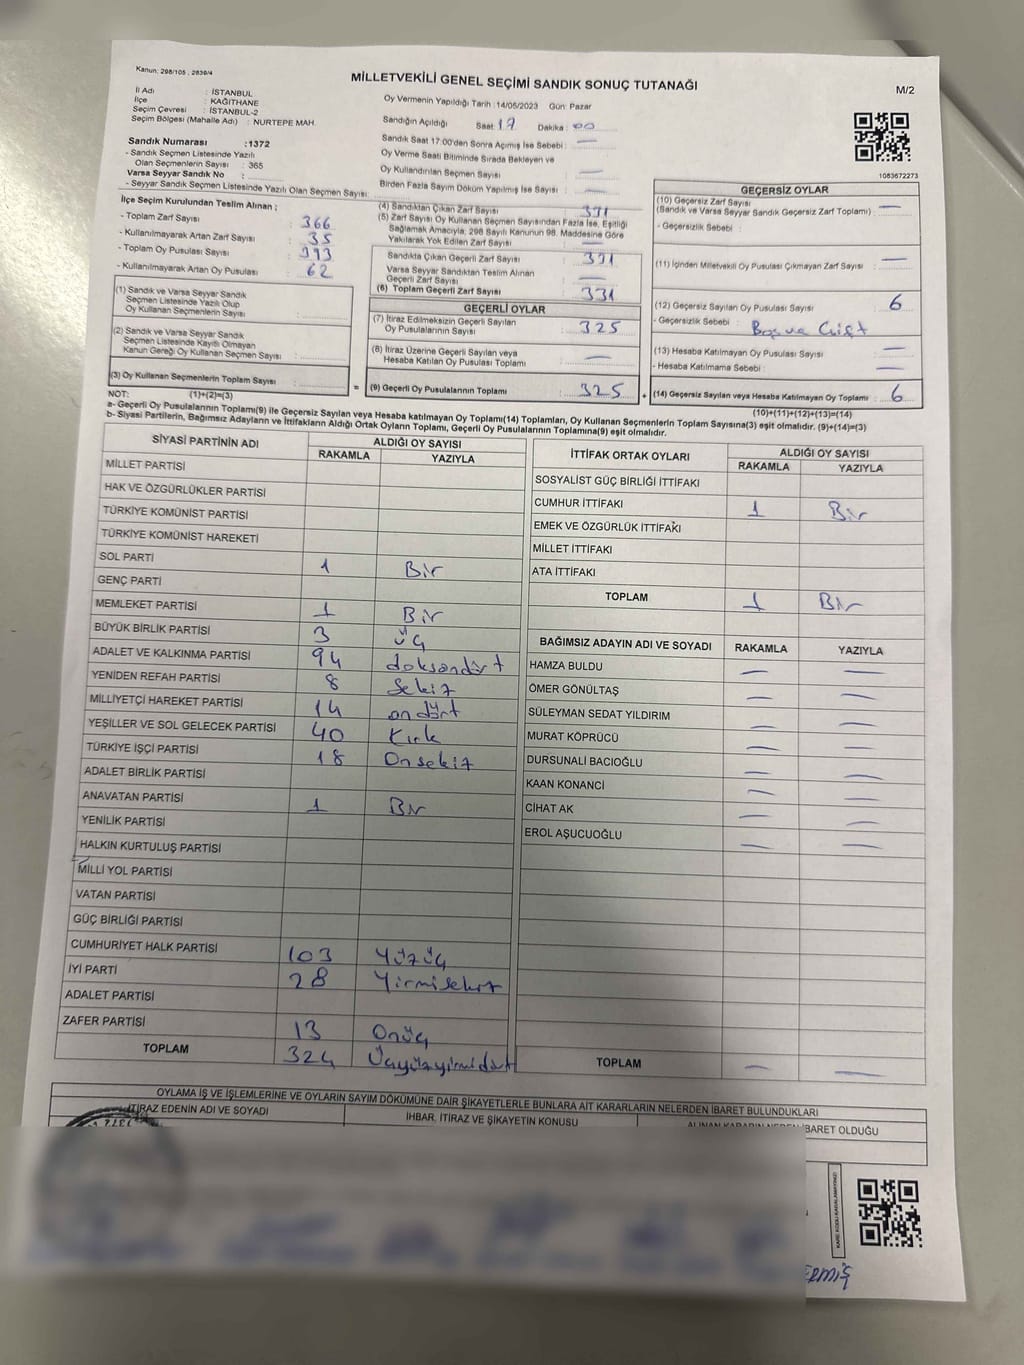 Kanun: 298/105 , 2839/4
MİLLETVEKİLİ GENEL SEÇİMİ SANDIK SONUÇ TUTANAĞI
M/2
İl Adı : İSTANBUL
İlçe : KAĞITHANE
Seçim Çevresi : İSTANBUL-2
Seçim Bölgesi (Mahalle Adı) : NURTEPE MAH.
Sandık Numarası :1372
- Sandık Seçmen Listesinde Yazılı
Olan Seçmenlerin Sayısı : 365
Varsa Seyyar Sandık No :
- Seyyar Sandık Seçmen Listesinde Yazılı Olan Seçmen Sayısı:
Oy Vermenin Yapıldığı Tarih :14/05/2023 Gün: Pazar
Sandığın Açıldığı Saat : 17 Dakika : 00
Sandık Saat 17:00'den Sonra Açımış İse Sebebi : —
Oy Verme Saati Bitiminde Sırada Bekleyen ve
Oy Kullandırılan Seçmen Sayısı : —
Birden Fazla Sayım Döküm Yapılmış İse Sayısı : —
1083672273
İlçe Seçim Kurulundan Teslim Alınan ;
- Toplam Zarf Sayısı : 366
- Kullanılmayarak Artan Zarf Sayısı : 35
- Toplam Oy Pusulası Sayısı : 393
- Kullanılmayarak Artan Oy Pusulası : 62
(1) Sandık ve Varsa Seyyar Sandık
Seçmen Listesinde Yazılı Olup
Oy Kullanan Seçmenlerin Sayısı :
(2) Sandık ve Varsa Seyyar Sandık
Seçmen Listesinde Kayıtlı Olmayan
Kanun Gereği Oy Kullanan Seçmen Sayısı :
(3) Oy Kullanan Seçmenlerin Toplam Sayısı :
(4) Sandıktan Çıkan Zarf Sayısı : 331
(5) Zarf Sayısı Oy Kullanan Seçmen Sayısından Fazla İse, Eşitliği
Sağlamak Amacıyla; 298 Sayılı Kanunun 98. Maddesine Göre
Yakılarak Yok Edilen Zarf Sayısı : —
Sandıkta Çıkan Geçerli Zarf Sayısı : 331
Varsa Seyyar Sandıktan Teslim Alınan
Geçerli Zarf Sayısı : —
(6) Toplam Geçerli Zarf Sayısı : 331
GEÇERLİ OYLAR
(7) İtiraz Edilmeksizin Geçerli Sayılan
Oy Pusulalarının Sayısı : 325
(8) İtiraz Üzerine Geçerli Sayılan veya
Hesaba Katılan Oy Pusulası Toplamı : —
= (9) Geçerli Oy Pusulalarının Toplamı : 325
GEÇERSİZ OYLAR
(10) Geçersiz Zarf Sayısı
(Sandık ve Varsa Seyyar Sandık Geçersiz Zarf Toplamı) : —
- Geçersizlik Sebebi :
(11) İçinden Milletvekili Oy Pusulası Çıkmayan Zarf Sayısı : —
(12) Geçersiz Sayılan Oy Pusulası Sayısı : 6
- Geçersizlik Sebebi : Boş ve Çift
(13) Hesaba Katılmayan Oy Pusulası Sayısı : —
- Hesaba Katılmama Sebebi : —
+ (14) Geçersiz Sayılan veya Hesaba Katılmayan Oy Toplamı : 6
NOT: (1)+(2)=(3)
(10)+(11)+(12)+(13)=(14)
a- Geçerli Oy Pusulalarının Toplamı(9) ile Geçersiz Sayılan veya Hesaba katılmayan Oy Toplamı(14) Toplamları, Oy Kullanan Seçmenlerin Toplam Sayısına(3) eşit olmalıdır. (9)+(14)=(3)
b- Siyasi Partilerin, Bağımsız Adayların ve İttifakların Aldığı Ortak Oyların Toplamı, Geçerli Oy Pusulalarının Toplamına(9) eşit olmalıdır.
SİYASİ PARTİNİN ADI
ALDIĞI OY SAYISI
RAKAMLA YAZIYLA
MİLLET PARTİSİ
HAK VE ÖZGÜRLÜKLER PARTİSİ
TÜRKİYE KOMÜNİST PARTİSİ
TÜRKİYE KOMÜNİST HAREKETİ
SOL PARTİ 1 Bir
GENÇ PARTİ
MEMLEKET PARTİSİ 1 Bir
BÜYÜK BİRLİK PARTİSİ 3 üç
ADALET VE KALKINMA PARTİSİ 94 doksandört
YENİDEN REFAH PARTİSİ 8 Sekiz
MİLLİYETÇİ HAREKET PARTİSİ 14 ondört
YEŞİLLER VE SOL GELECEK PARTİSİ 40 Kırk
TÜRKİYE İŞÇİ PARTİSİ 18 Onsekiz
ADALET BİRLİK PARTİSİ
ANAVATAN PARTİSİ 1 Bir
YENİLİK PARTİSİ
HALKIN KURTULUŞ PARTİSİ
MİLLİ YOL PARTİSİ
VATAN PARTİSİ
GÜÇ BİRLİĞİ PARTİSİ
CUMHURİYET HALK PARTİSİ 103 Yüzüç
İYİ PARTİ 28 Yirmisekiz
ADALET PARTİSİ
ZAFER PARTİSİ 13 Onüç
TOPLAM 324 Üçyüzyirmidört
İTTİFAK ORTAK OYLARI
ALDIĞI OY SAYISI
RAKAMLA YAZIYLA
SOSYALİST GÜÇ BİRLİĞİ İTTİFAKI
CUMHUR İTTİFAKI 1 Bir
EMEK VE ÖZGÜRLÜK İTTİFAKI
MİLLET İTTİFAKI
ATA İTTİFAKI
TOPLAM 1 Bir
BAĞIMSIZ ADAYIN ADI VE SOYADI RAKAMLA YAZIYLA
HAMZA BULDU — —
ÖMER GÖNÜLTAŞ — —
SÜLEYMAN SEDAT YILDIRIM — —
MURAT KÖPRÜCÜ — —
DURSUNALİ BACIOĞLU — —
KAAN KONANCİ — —
CİHAT AK — —
EROL AŞUCUOĞLU — —
TOPLAM — —
OYLAMA İŞ VE İŞLEMLERİNE VE OYLARIN SAYIM DÖKÜMÜNE DAİR ŞİKAYETLERLE BUNLARA AİT KARARLARIN NELERDEN İBARET BULUNDUKLARI
İTİRAZ EDENİN ADI VE SOYADI
İHBAR, İTİRAZ VE ŞİKAYETİN KONUSU
ALINAN KARARIN NEDEN İBARET OLDUĞU
1372
KARE KODU KARALAMAYINIZ!